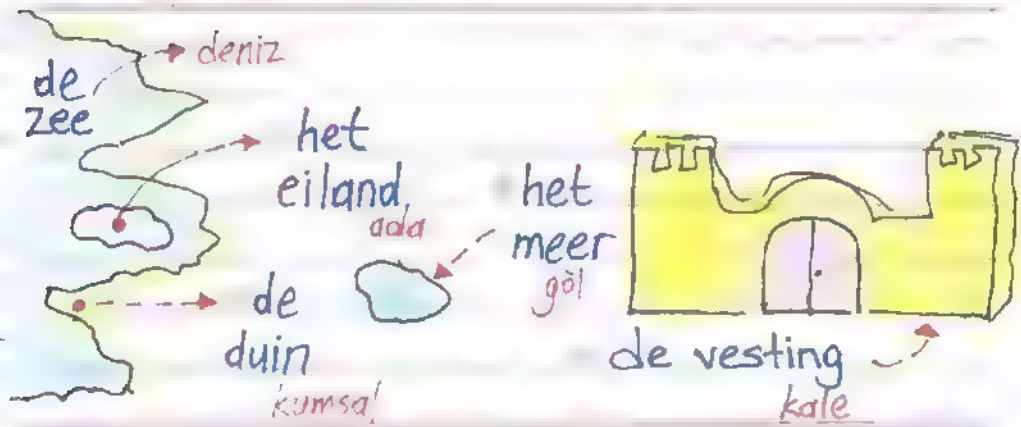 de
zee
deniz
het
eiland,
ada
het
meer
göl
de
duin
kumsal
de vesting
kale